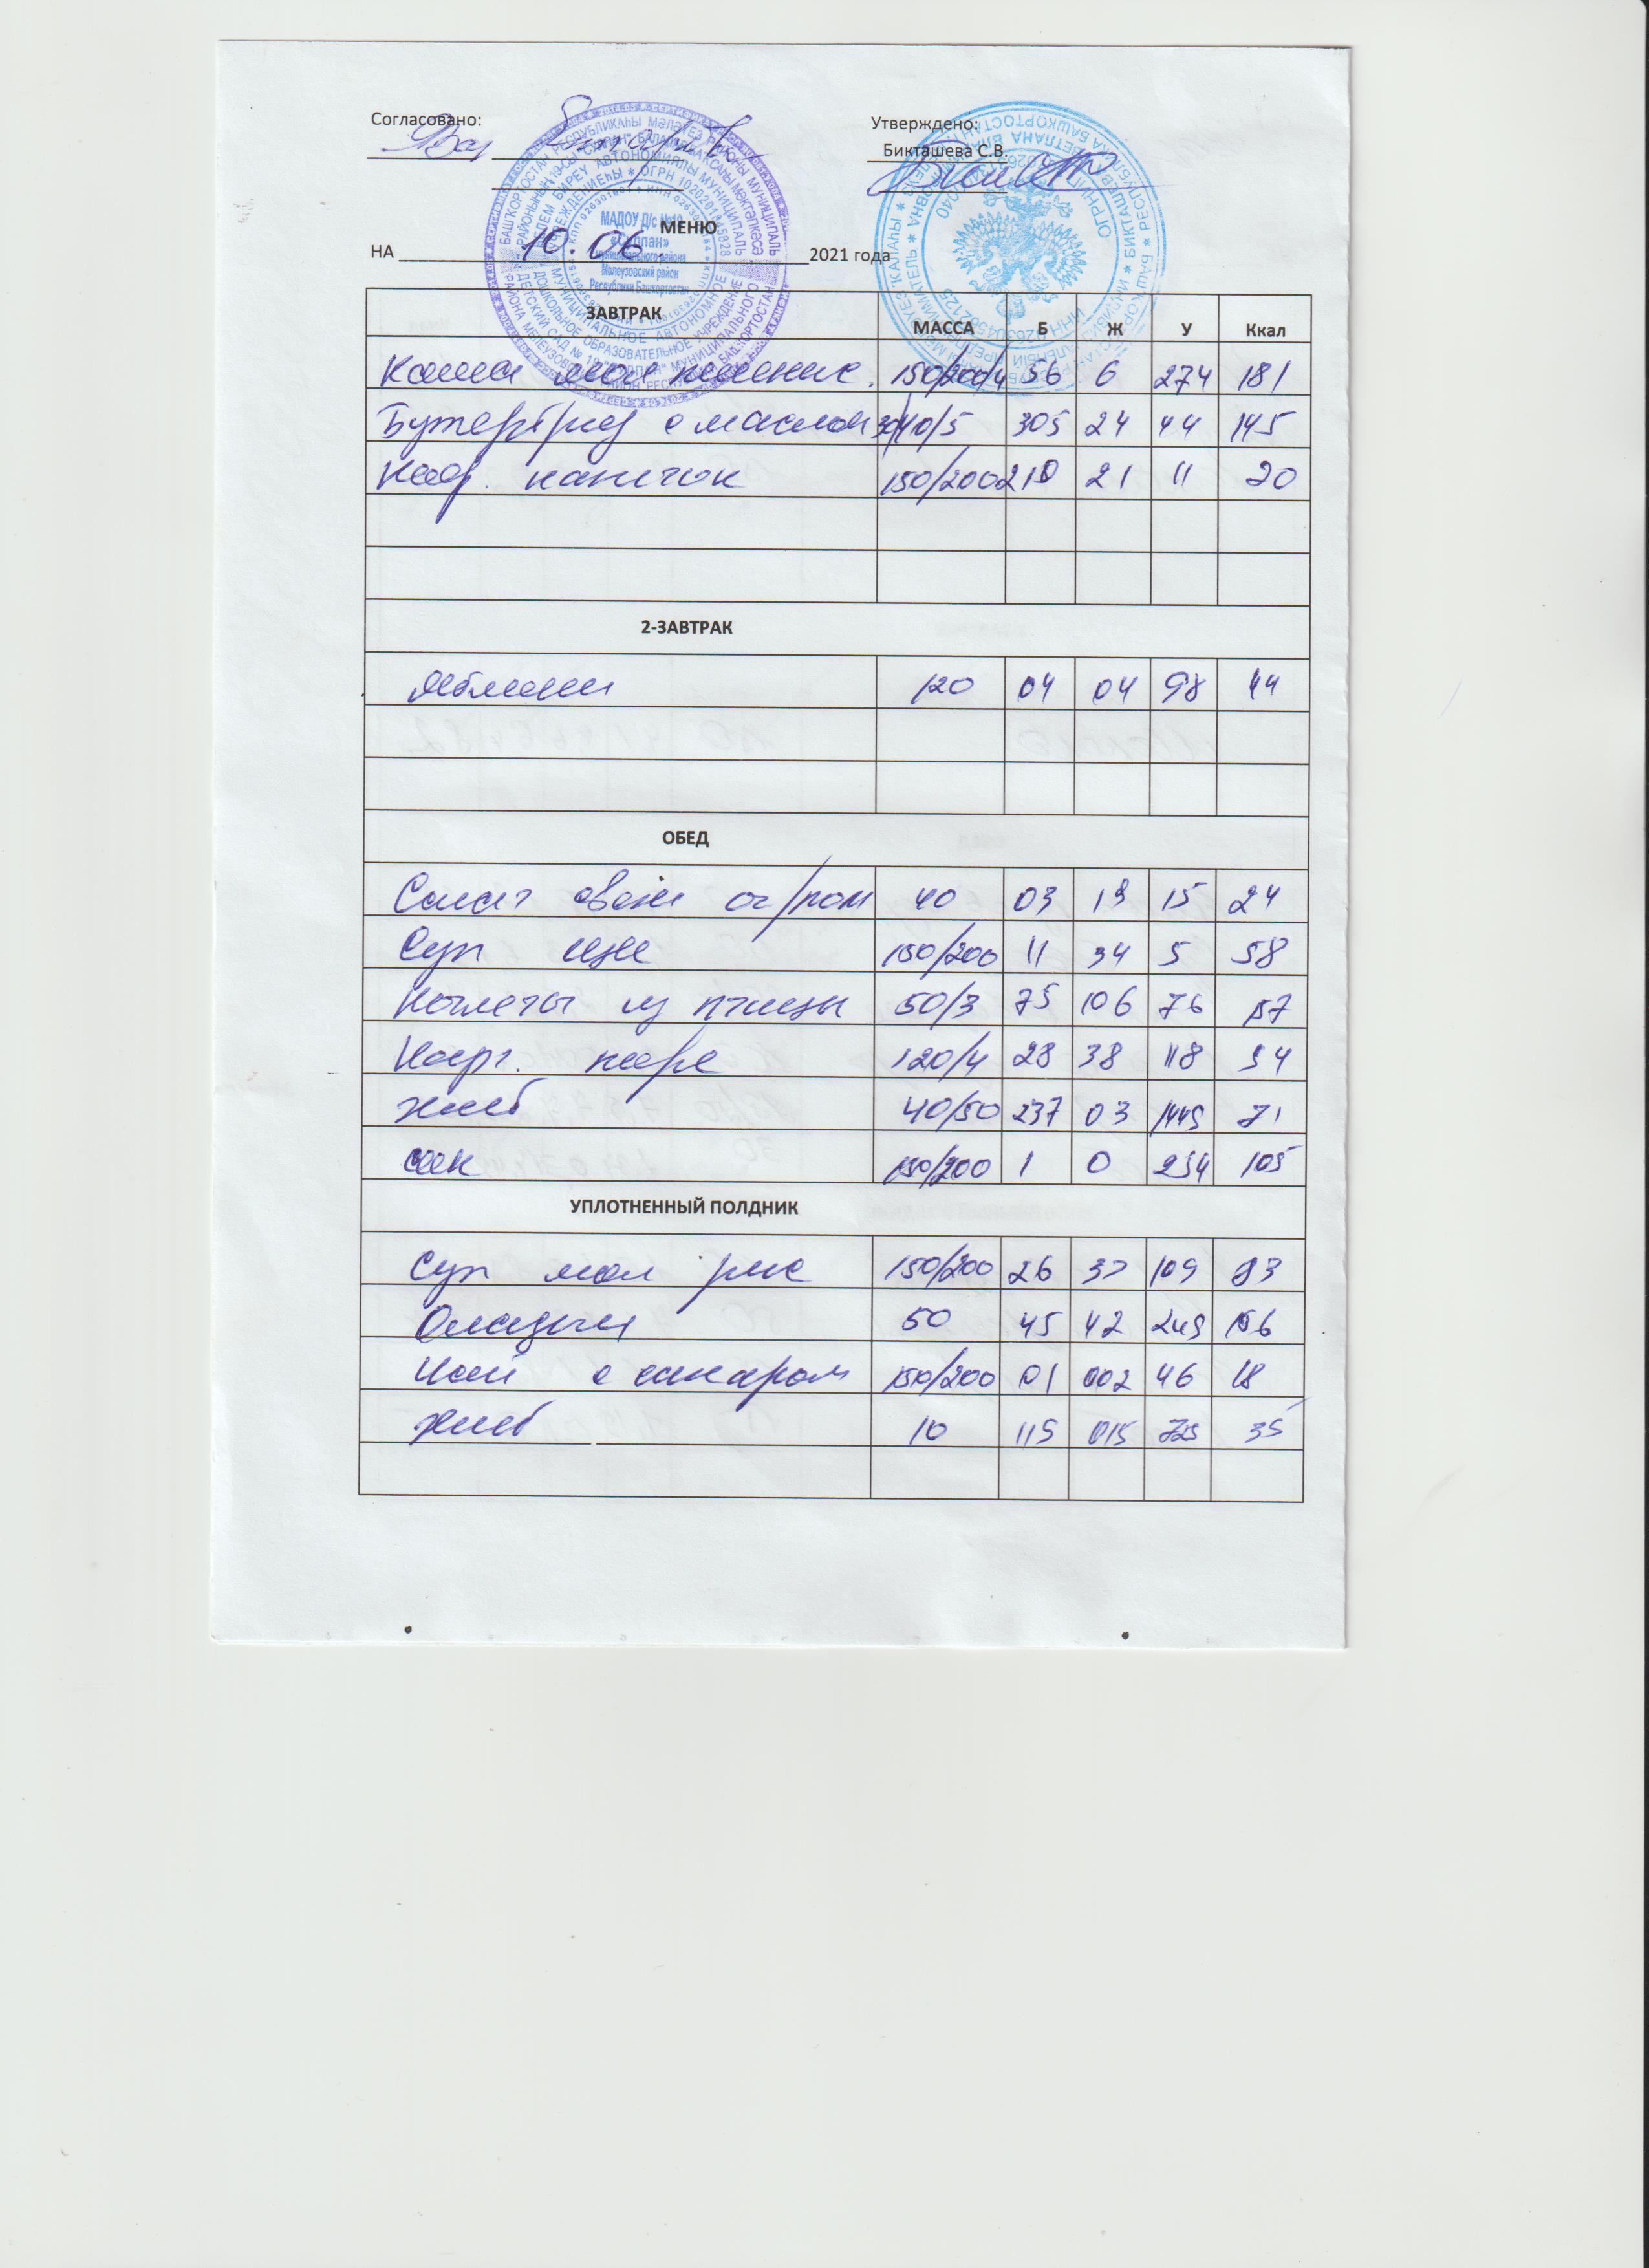 Согласовано:
Утверждено:
Бикташева С.В.
МАДОУ Д/с №19
МЕНЮ
НА 10.06. 2021 года
ЗАВТРАК МАССА Б Ж У Ккал
Каша мол 150/200/4 56 6 274 181
Бутерброд с маслом 30/40/5 305 24 44 145
Коф. напиток 150/200 210 21 11 20
2-ЗАВТРАК
яблоки 120 04 04 98 44
ОБЕД
Салат свеж ог/пом 40 03 19 15 24
Суп щи 150/200 11 34 5 58
Котлеты из птицы 50/3 75 106 76
Карт. пюре 120/4 28 38 118 94
хлеб 40/50 237 03 1449 71
сок 150/200 1 0 254 105
УПЛОТНЕННЫЙ ПОЛДНИК
Суп мол рис 150/200 26 109 83
Оладьи 50 45 42 249
Чай с сахаром 150/200 01 002 46 18
хлеб 10 115 015 725 35